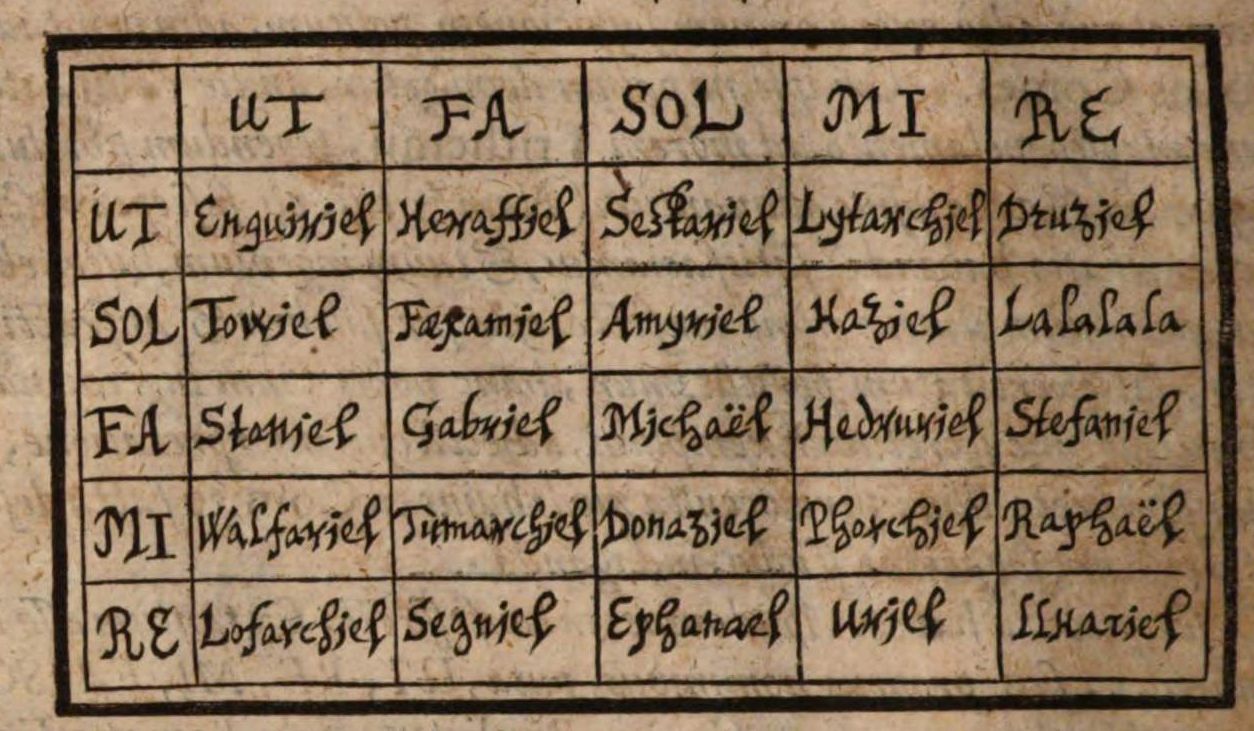 UT FA SOL MI RE
UT Enguiriel Heraffiel Seſtariel Lytarchiel Druziel
SOL Towiel Færamiel Amyriel Haziel Lalalala
FA Staniel Gabriel Michaël Hedruriel Stefaniel
MI Walfariel Tumarchiel Donaziel Phorchiel Raphaël
RE Lofarchiel Segniel Ephanael Uriel